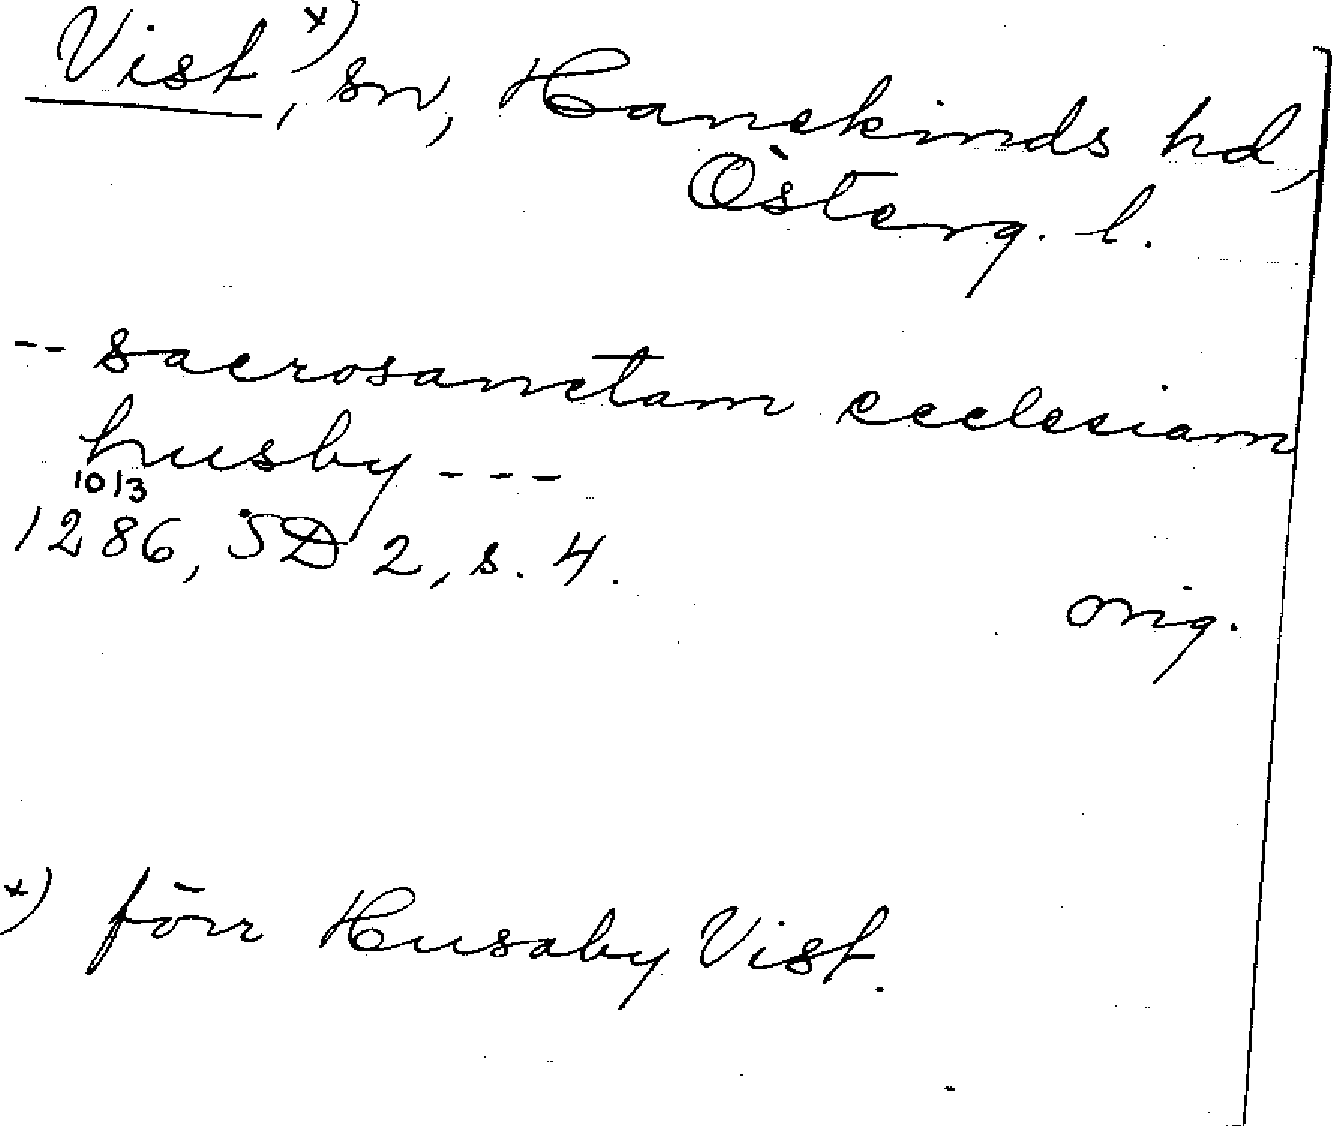 Vist x), sn, Hanekinds hd,
Österg. l.
-- sacrosanctam ecclesiam
husby ---
10/3
1286, SD 2, s. 4.
orig.
x) förr Husaby Vist.